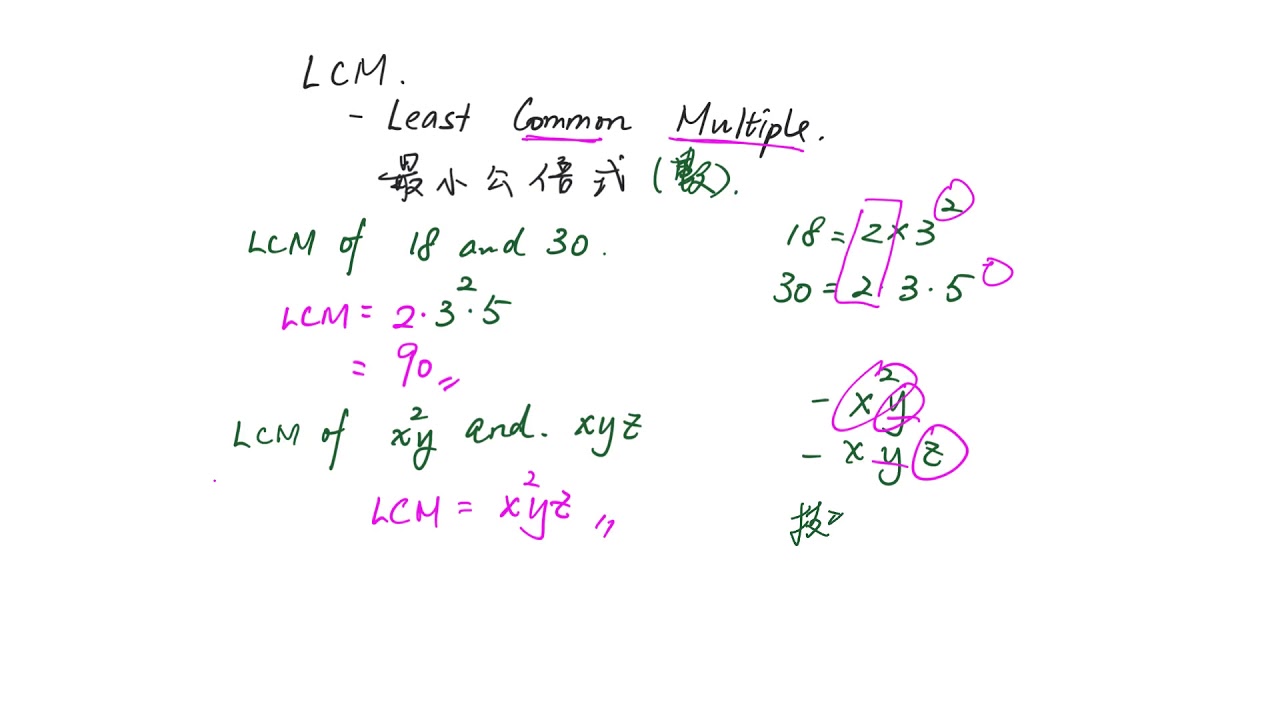 LCM.
- Least Common Multiple.
最小公倍式 (數).
LCM of 18 and 30.
LCM = 2·3²·5
= 90〃
LCM of x²y and. xyz
LCM = x²yz〃
18 = 2×3²
30 = 2·3·5
- x²y
- xyz